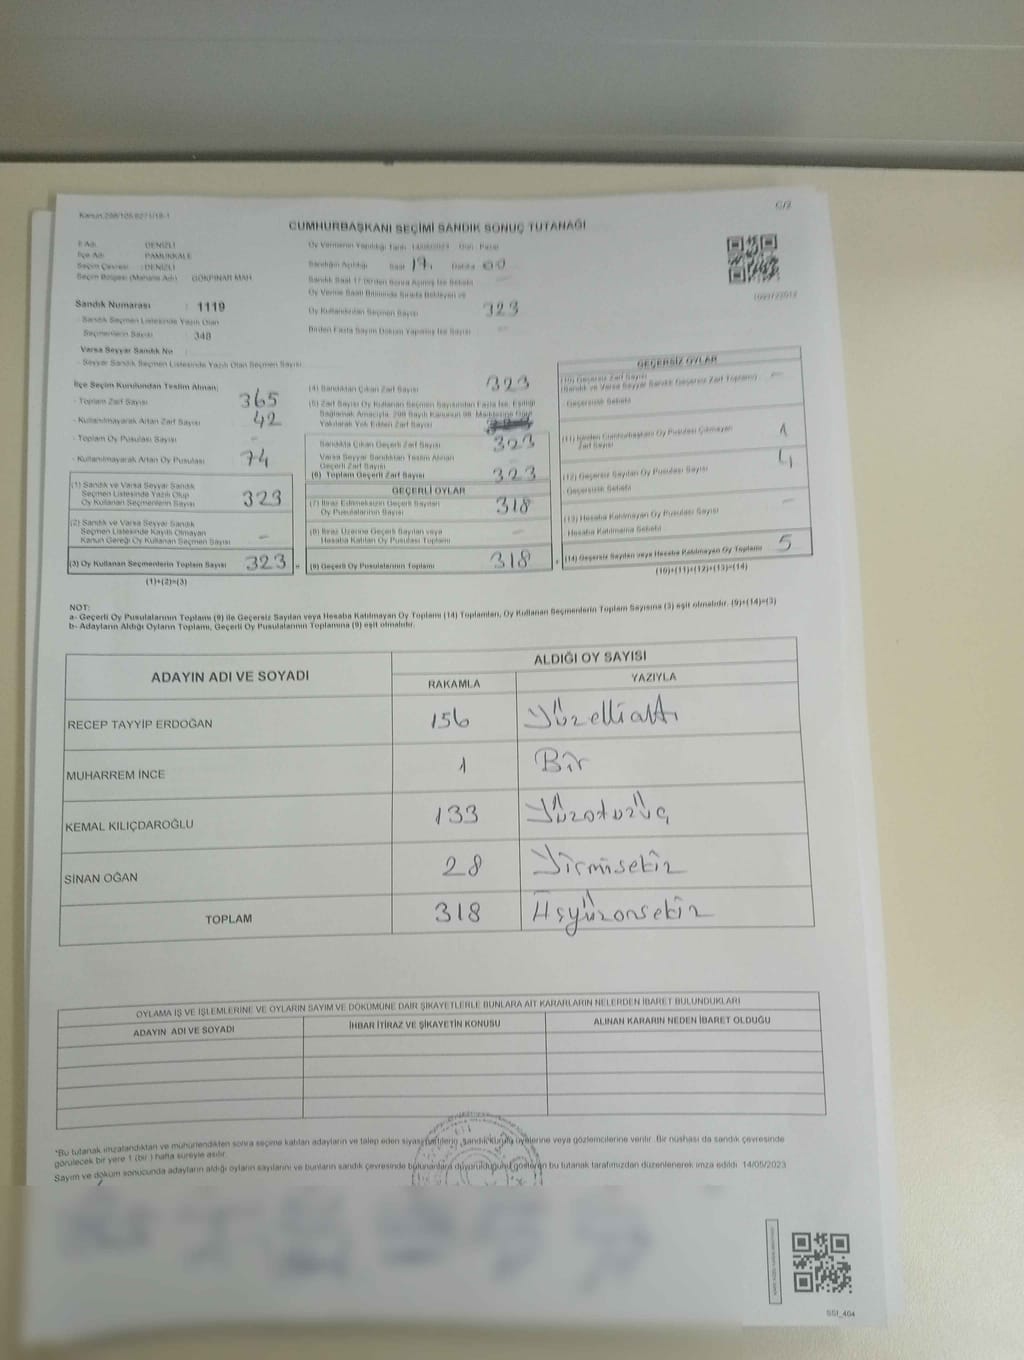 Kanun:298/105,6271/18-1
C/2
CUMHURBAŞKANI SEÇİMİ SANDIK SONUÇ TUTANAĞI
İl Adı : DENİZLİ
İlçe Adı : PAMUKKALE
Seçim Çevresi : DENİZLİ
Seçim Bölgesi (Mahalle Adı) : GÖKPINAR MAH
Sandık Numarası : 1119
- Sandık Seçmen Listesinde Yazılı Olan
Seçmenlerin Sayısı : 348
Varsa Seyyar Sandık No :
- Seyyar Sandık Seçmen Listesinde Yazılı Olan Seçmen Sayısı
Oy Vermenin Yapıldığı Tarih 14/05/2023 Gün : Pazar
Sandığın Açıldığı Saat 17 Dakika 00
Sandık Saat 17:00'den Sonra Açılmış İse Sebebi
Oy Verme Saati Bitiminde Sırada Bekleyen ve
Oy Kullandırılan Seçmen Sayısı 323
Birden Fazla Sayım Döküm Yapılmış İse Sayısı –
İlçe Seçim Kurulundan Teslim Alınan;
- Toplam Zarf Sayısı 365
- Kullanılmayarak Artan Zarf Sayısı 42
- Toplam Oy Pusulası Sayısı –
- Kullanılmayarak Artan Oy Pusulası 74
(1) Sandık ve Varsa Seyyar Sandık
Seçmen Listesinde Yazılı Olup
Oy Kullanan Seçmenlerin Sayısı 323
(2) Sandık ve Varsa Seyyar Sandık
Seçmen Listesinde Kayıtlı Olmayan
Kanun Gereği Oy Kullanan Seçmen Sayısı –
(3) Oy Kullanan Seçmenlerin Toplam Sayısı 323 =
(1)+(2)=(3)
(4) Sandıktan Çıkan Zarf Sayısı 323
(5) Zarf Sayısı Oy Kullanan Seçmen Sayısından Fazla İse, Eşitliği
Sağlamak Amacıyla, 298 Sayılı Kanunun 98. Maddesine Göre
Yakılarak Yok Edilen Zarf Sayısı
Sandıkta Çıkan Geçerli Zarf Sayısı 323
Varsa Seyyar Sandıktan Teslim Alınan
Geçerli Zarf Sayısı –
(6) Toplam Geçerli Zarf Sayısı 323
GEÇERLİ OYLAR
(7) İtiraz Edilmeksizin Geçerli Sayılan
Oy Pusulalarının Sayısı 318
(8) İtiraz Üzerine Geçerli Sayılan veya
Hesaba Katılan Oy Pusulası Toplamı –
(9) Geçerli Oy Pusulalarının Toplamı 318 +
1099722012
GEÇERSİZ OYLAR
(10) Geçersiz Zarf Sayısı –
(Sandık ve Varsa Seyyar Sandık Geçersiz Zarf Toplamı)
Geçersizlik Sebebi
(11) İçinden Cumhurbaşkanı Oy Pusulası Çıkmayan
Zarf Sayısı 1
(12) Geçersiz Sayılan Oy Pusulası Sayısı 4
Geçersizlik Sebebi
(13) Hesaba Katılmayan Oy Pusulası Sayısı –
Hesaba Katılmama Sebebi
(14) Geçersiz Sayılan veya Hesaba Katılmayan Oy Toplamı 5
(10)+(11)+(12)+(13)=(14)
NOT:
a- Geçerli Oy Pusulalarının Toplamı (9) ile Geçersiz Sayılan veya Hesaba Katılmayan Oy Toplamı (14) Toplamları, Oy Kullanan Seçmenlerin Toplam Sayısına (3) eşit olmalıdır. (9)+(14)=(3)
b- Adayların Aldığı Oyların Toplamı, Geçerli Oy Pusulalarının Toplamına (9) eşit olmalıdır.
ADAYIN ADI VE SOYADI
ALDIĞI OY SAYISI
RAKAMLA YAZIYLA
RECEP TAYYİP ERDOĞAN 156 Yüzellialtı
MUHARREM İNCE 1 Bir
KEMAL KILIÇDAROĞLU 133 Yüzotuzüç
SİNAN OĞAN 28 Yirmisekiz
TOPLAM 318 Üçyüzonsekiz
OYLAMA İŞ VE İŞLEMLERİNE VE OYLARIN SAYIM VE DÖKÜMÜNE DAİR ŞİKAYETLERLE BUNLARA AİT KARARLARIN NELERDEN İBARET BULUNDUKLARI
ADAYIN ADI VE SOYADI İHBAR İTİRAZ VE ŞİKAYETİN KONUSU ALINAN KARARIN NEDEN İBARET OLDUĞU
*Bu tutanak imzalandıktan ve mühürlendikten sonra seçime katılan adayların ve talep eden siyasi partilerin sandık kurulu üyelerine veya gözlemcilerine verilir. Bir nüshası da sandık çevresinde
görülecek bir yere 1 (bir ) hafta süreyle asılır.
Sayım ve döküm sonucunda adayların aldığı oyların sayılarını ve bunların sandık çevresinde bulunanlara duyurulduğunu gösteren bu tutanak tarafımızdan düzenlenerek imza edildi. 14/05/2023
SSI_404